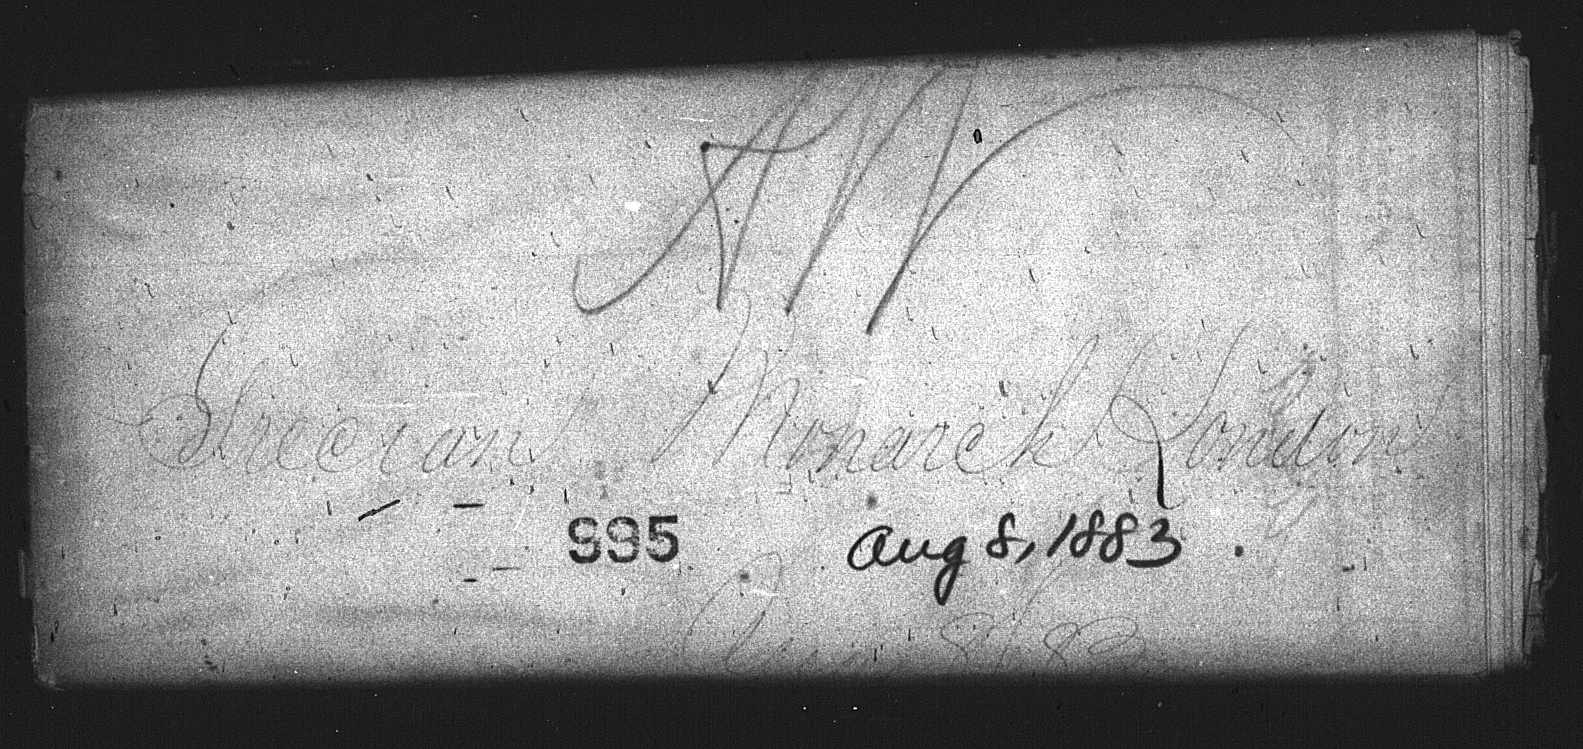 Grecian Monarch London
995 Aug 8, 1883
Aug 8/83